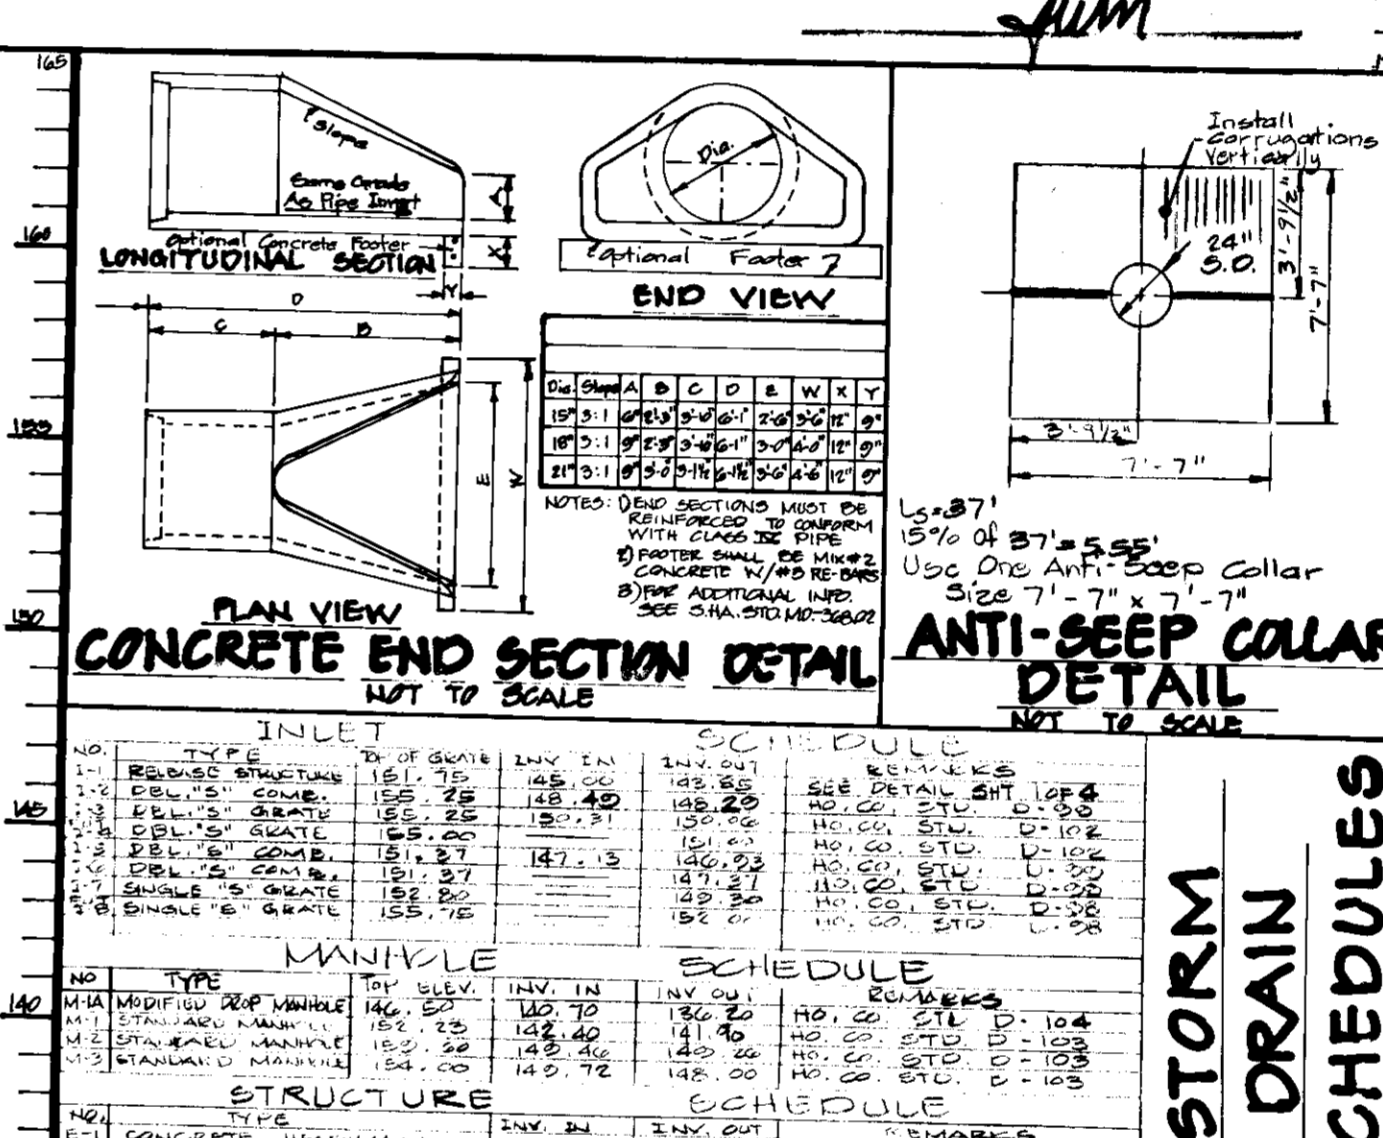 165
160
155
150
145
140
℄ Slope
Same Grade
As Pipe Invert
A
X
Optional Concrete Footer
LONGITUDINAL SECTION
Y
D
C
B
E
W
PLAN VIEW
Dia.
Optional Footer
END VIEW
Dia. Slope A B C D E W X Y
15" 3:1 6" 2'-3" 3'-10" 6'-1" 2'-6" 3'-6" 12" 9"
18" 3:1 9" 2'-3" 3'-10" 6'-1" 3'-0" 4'-0" 12" 9"
21" 3:1 9" 3'-0" 3'-1½" 6'-1½" 3'-6" 4'-6" 12" 9"
NOTES: 1) END SECTIONS MUST BE
REINFORCED TO CONFORM
WITH CLASS IV PIPE
2) FOOTER SHALL BE MIX #2
CONCRETE W/#3 RE-BARS
3) FOR ADDITIONAL INFO.
SEE S.HA. STD. MD-368.02
CONCRETE END SECTION DETAIL
NOT TO SCALE
Install
Corrugations
Vertically
24"
S.D.
3'-9 1/2"
7'-7"
3'-9 1/2"
7'-7"
Ls=37'
15% Of 37'=5.55'
Use One Anti-Seep Collar
Size 7'-7" x 7'-7"
ANTI-SEEP COLLAR
DETAIL
NOT TO SCALE
INLET SCHEDULE
NO. TYPE TOP OF GRATE INV. IN INV. OUT REMARKS
I-1 RELEASE STRUCTURE 151.75 145.00 SEE DETAIL SHT 1 OF 4
I-2 DBL. "S" COMB. 155.25 148.49 148.29 HO. CO. STD.
DBL. "S" GRATE 155.25 150.31 150.06 HO. CO. STD. D-102
DBL. "S" GRATE 155.00 HO. CO. STD. D-102
DBL. "S" COMB. 151.37 147.13 146.93 HO. CO. STD.
DBL. "S" COMB. 151.37 HO. CO. STD.
SINGLE "S" GRATE 152.80 149.30 HO. CO. STD. D-98
SINGLE "S" GRATE 155.75 HO. CO. STD. D-98
MANHOLE SCHEDULE
NO TYPE TOP ELEV. INV. IN INV OUT REMARKS
M-1A MODIFIED DROP MANHOLE 146.50 140.70 136.20 HO. CO. STD. D-104
M-1 STANDARD MANHOLE 152.23 142.40 141.90 HO. CO. STD. D-103
M-2 STANDARD MANHOLE 149.46 149.26 HO. CO. STD. D-103
M-3 STANDARD MANHOLE 154.00 149.72 148.00 HO. CO. STD. D-103
STRUCTURE SCHEDULE
NO. TYPE INV. IN INV. OUT REMARKS
E-1 CONCRETE
STORM
DRAIN
CHEDULES